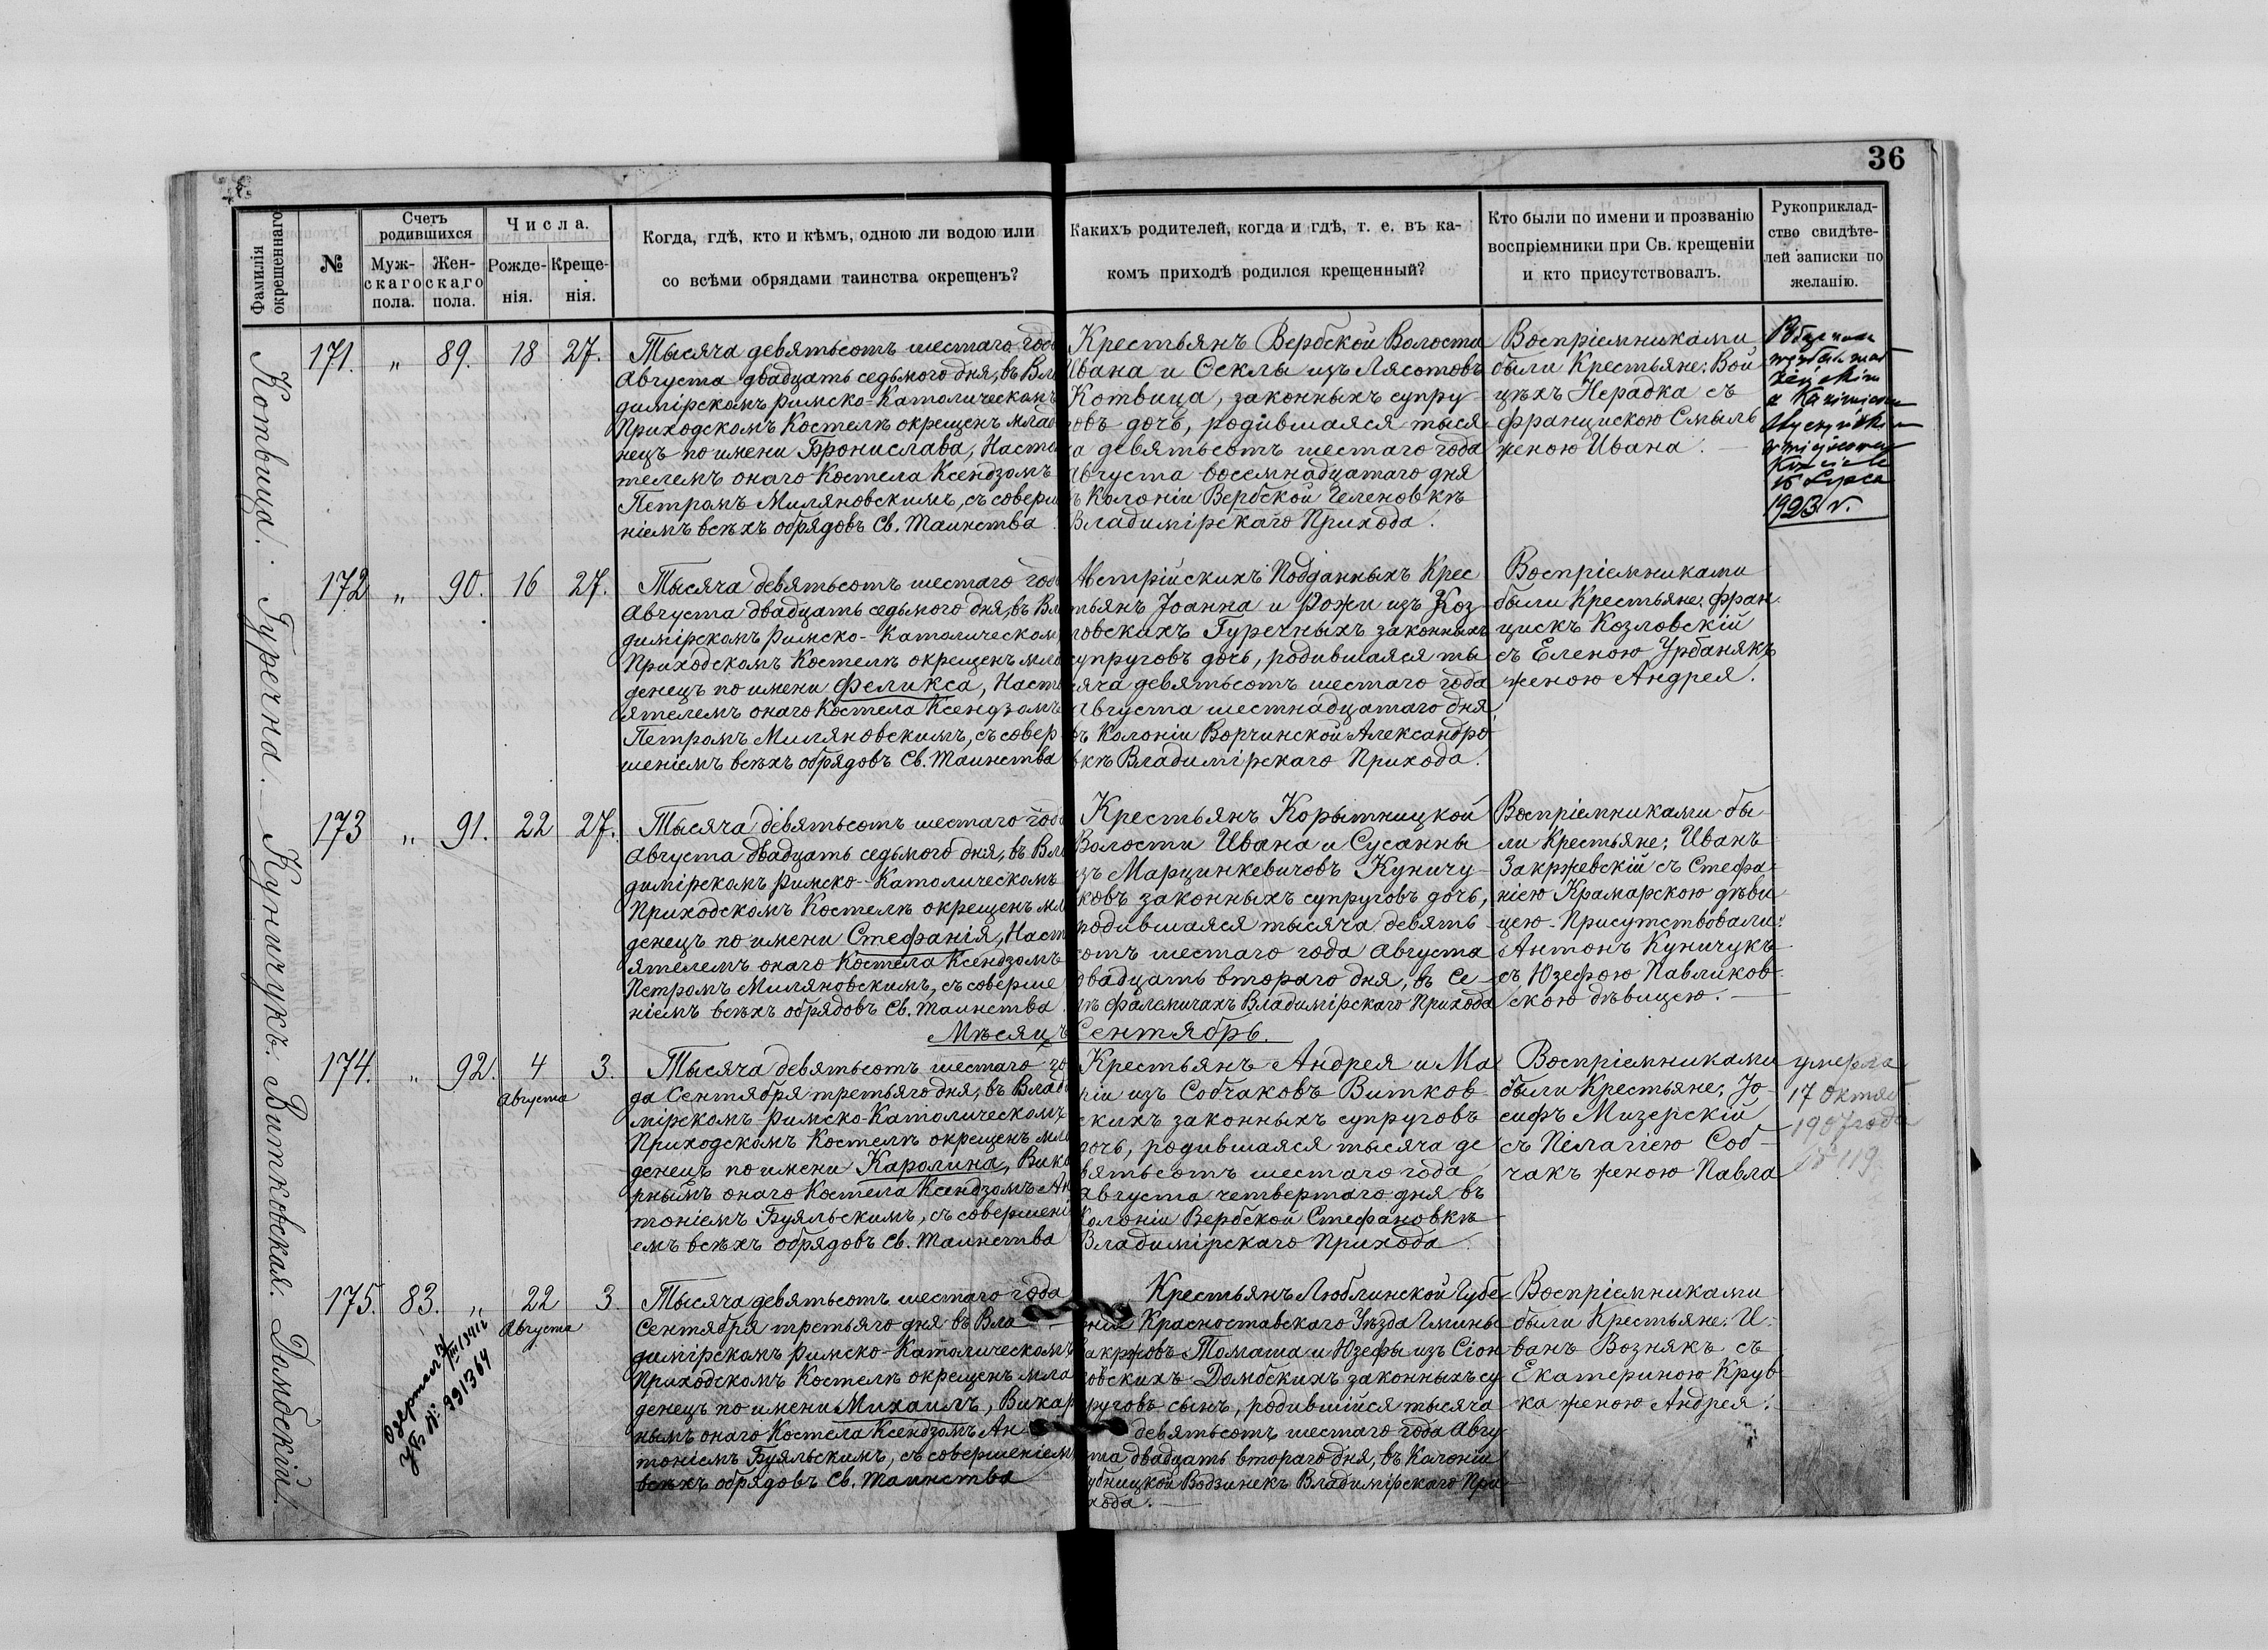 36
Фамилія
окрещеннаго
№
Счетъ
родившихся
Муж-
скаго
пола.
Жен-
скаго
пола.
Числа.
Рожде-
нія.
Креще-
нія.
Когда, гдѣ, кто и кѣмъ, одною ли водою или
со всѣми обрядами таинства окрещенъ?
Какихъ родителей, когда и гдѣ, т. е. въ ка-
комъ приходѣ родился крещенный?
Кто были по имени и прозванію
воспріемники при Св. крещеніи
и кто присутствовалъ.
Рукоприклад-
ство свидѣте-
лей записки по
желанію.
Котвица.
171. " 89. 18 27.
Тысяча девятьсотъ шестаго года
Августа двадцать седьмого дня, въ Вла
димірскомъ Римско-Католическомъ
Приходскомъ Костелѣ окрещенъ млад
нецъ по имени Бронислава, Насто
телемъ онаго Костела Ксендзомъ
Петромъ Миляновскимъ, съ соверш
ніемъ всѣхъ обрядовъ Св. Таинства
Крестьянъ Вербской Волости
Ивана и Феклы изъ Лясотовъ
Котвица, законныхъ супру-
говъ дочь, родившаяся тыся
ча девятьсотъ шестаго года
Августа восемнадцатаго дня
въ Колоніи Вербской Геленовкѣ
Владимірскаго Прихода.
Воспріемниками
были Крестьяне: Вой
цѣхъ Нерадка съ
Францискою Смыль
женою Ивана.
1923 r.
Гуречна.
172 " 90. 16 27.
Тысяча девятьсотъ шестаго года
Августа двадцать седьмого дня, въ Вла
димірскомъ Римско-Католическом
Приходскомъ Костелѣ окрещенъ мла
денецъ по имени Феликса, Наст
ятелемъ онаго Костела Ксендзомъ
Петромъ Миляновскимъ, съ совер
шеніемъ всѣхъ обрядовъ Св. Таинства
Австрійскихъ Подданныхъ Крес
тьянъ Іоанна и Рожи изъ Коз-
ловскихъ Гуречныхъ законныхъ
супруговъ дочь, родившаяся ты
сяча девятьсотъ шестаго года
Августа шестнадцатаго дня
въ Колоніи Ворчинской Александро
вкѣ Владимірскаго Прихода.
Воспріемниками
были Крестьяне: Фран
цискъ Козловскій
съ Еленою Урбанякъ
женою Андрея.
Куничукъ.
173 " 91. 22 27.
Тысяча девятьсотъ шестаго года
Августа двадцать седьмого дня, въ Вла
димірскомъ Римско-Католическомъ
Приходскомъ Костелѣ окрещенъ мла
денецъ по имени Стефанія, Наст
ятелемъ онаго Костела Ксендзомъ
Петромъ Миляновскимъ, съ соверше
ніемъ всѣхъ обрядовъ Св. Таинства
Крестьянъ Корытницкой
Волости Ивана и Сусанны
изъ Марцинкевичовъ Куничу-
ковъ законныхъ супруговъ дочь,
родившаяся тысяча девять
сотъ шестаго года Августа
двадцать второго дня, въ Се-
лѣ Фалемичахъ Владимірскаго Прихода
Воспріемниками бы-
ли Крестьяне: Иванъ
Закржевскій съ Стефа-
ніею Крамарскою дѣви
цею. Присутствовали:
Антонъ Куничукъ
съ Юзефою Павликов-
скою дѣвицею.
Мѣсяцъ Сентябрь.
Витковская.
174. " 92. 4 3.
Августа
Тысяча девятьсотъ шестаго го
да Сентября третьяго дня, въ Влади
мірскомъ Римско-Католическомъ
Приходскомъ Костелѣ окрещенъ мла
денецъ по имени Каролина, Вика
рнымъ онаго Костела Ксендзомъ Ан
тоніемъ Буяльскимъ, съ совершені
емъ всѣхъ обрядовъ Св. Таинства
Крестьянъ Андрея и Ма
ріи изъ Собчаковъ Витков-
скихъ законныхъ супруговъ
дочь, родившаяся тысяча де
вятьсотъ шестаго года
Августа четвертаго дня въ
Колоніи Вербской Стефановкѣ
Владимірскаго Прихода.
Воспріемниками
были Крестьяне: Іо-
сифъ Мизерскій
съ Пелагіею Соб-
чакъ женою Павла
умерла
17 Октяб
1907 года
№ 119.
Домбскій.
175. 83. " 22 3.
Августа
№ 991364
Тысяча девятьсотъ шестаго года
Сентября третьяго дня въ Вла
димірскомъ Римско-Католическомъ
Приходскомъ Костелѣ окрещенъ мла
денецъ по имени Михаилъ, Викар
нымъ онаго Костела Ксендзомъ Ан-
тоніемъ Буяльскимъ, съ совершеніем
всѣхъ обрядовъ Св. Таинства
Крестьянъ Люблинской Губе
рніи Красноставскаго Уѣзда Гмины
Закржовъ Томаша и Юзефы изъ Сіон
ковскихъ Домбскихъ законныхъ су
пруговъ сынъ, родившійся тысяча
девятьсотъ шестаго года Авгу
ста двадцать втораго дня, въ Колоніи
Владимірскаго При
хода.
Воспріемниками
были Крестьяне: И-
ванъ Вознякъ съ
Екатериною Крув
ка женою Андрея.